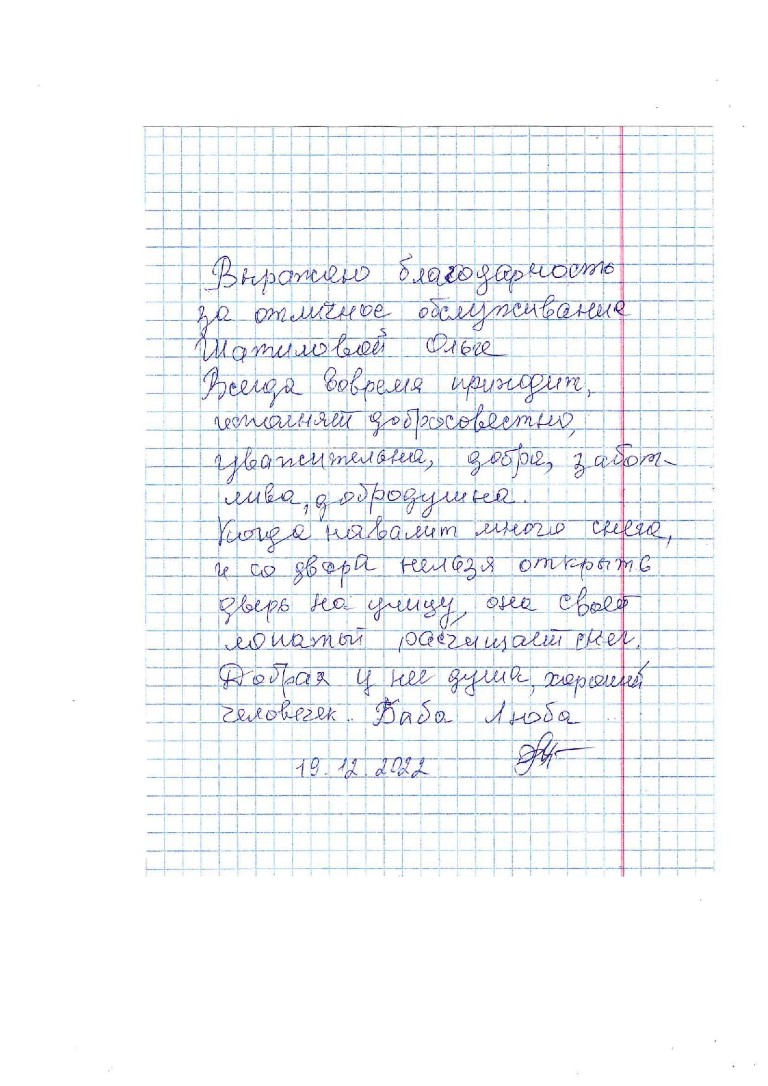 Выражаю благодарность
за отличное обслуживание
Шатиловой Ольге
Всегда вовремя приходит,
исполняет добросовестно,
уважительна, добра, забот-
лива, добродушна.
Когда навалит много снега,
и со двора нельзя открыть
дверь на улицу, она своей
лопатый расчищает снег.
Добрая у нее душа, хороший
человечек. Баба Люба
19.12.2022